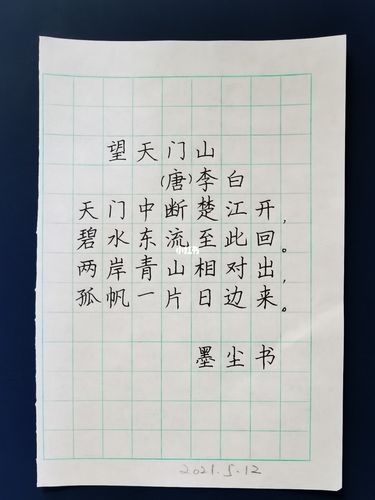 望天门山
(唐)李白
天门中断楚江开,
碧水东流至此回。
两岸青山相对出,
孤帆一片日边来。
小红书
墨尘书
2021.5.12